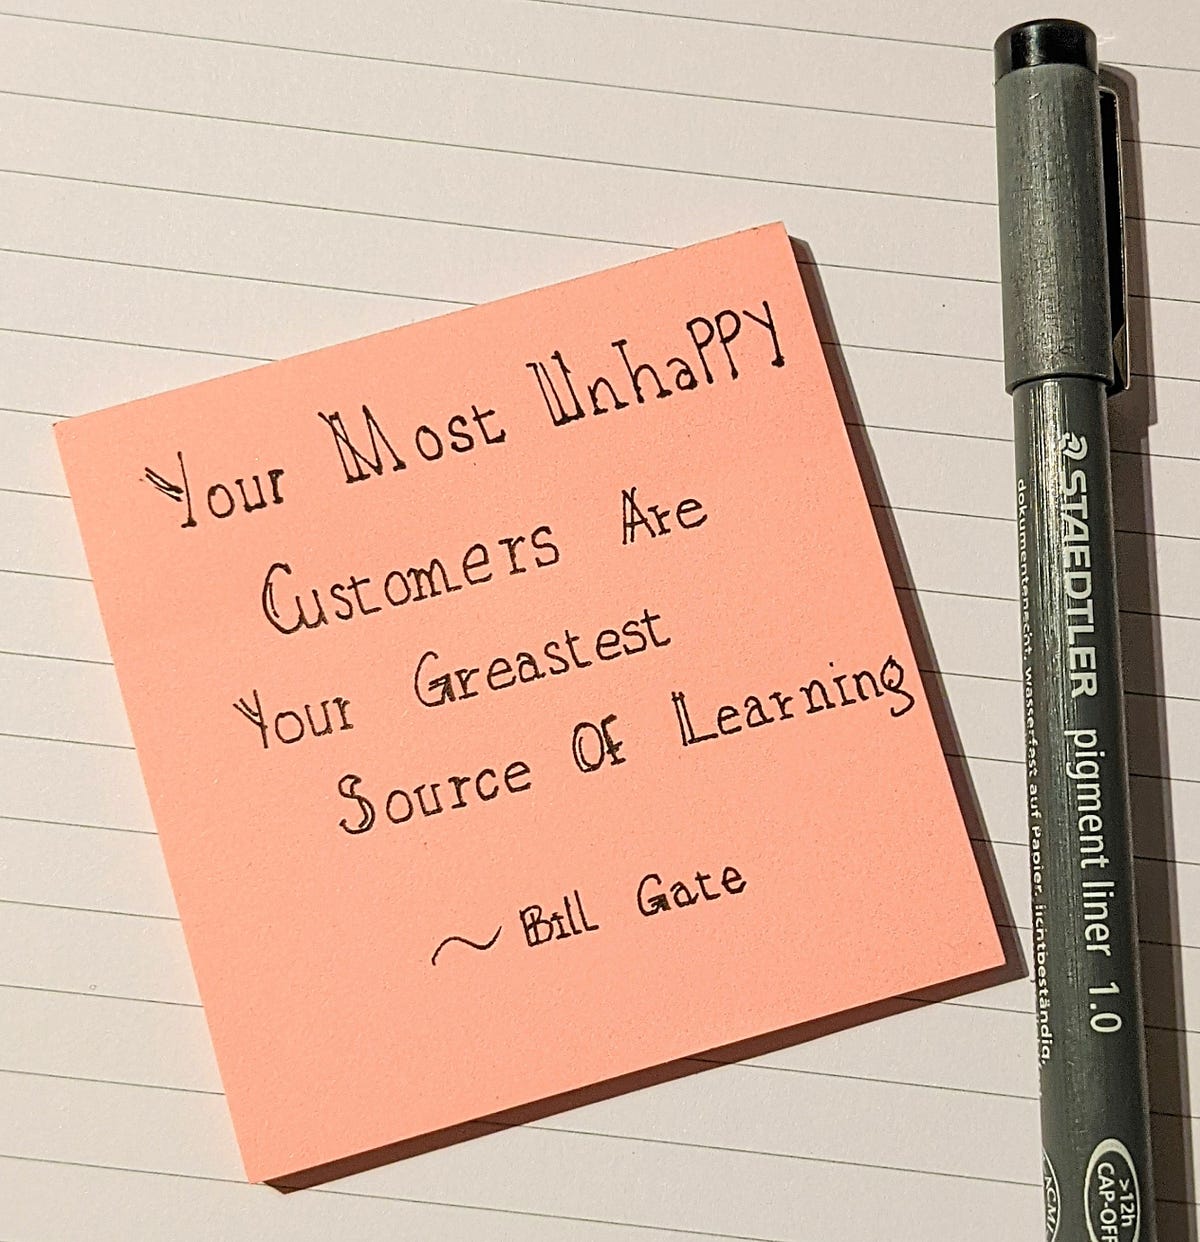 Your Most UnhaPPY
Customers Are
Your Greastest
Source Of Learning
~ Bill Gate
STAEDTLER pigment liner 1.0
dokumentenecht, wasserfest auf Papier, lichtbeständig,
>12h
CAP-OFF